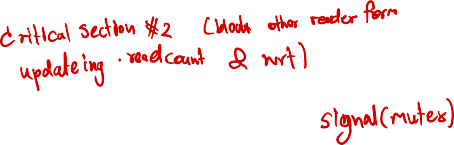 critical section #2 (blocks other reader form
updateing . readcount & wrt)
signal(mutex)